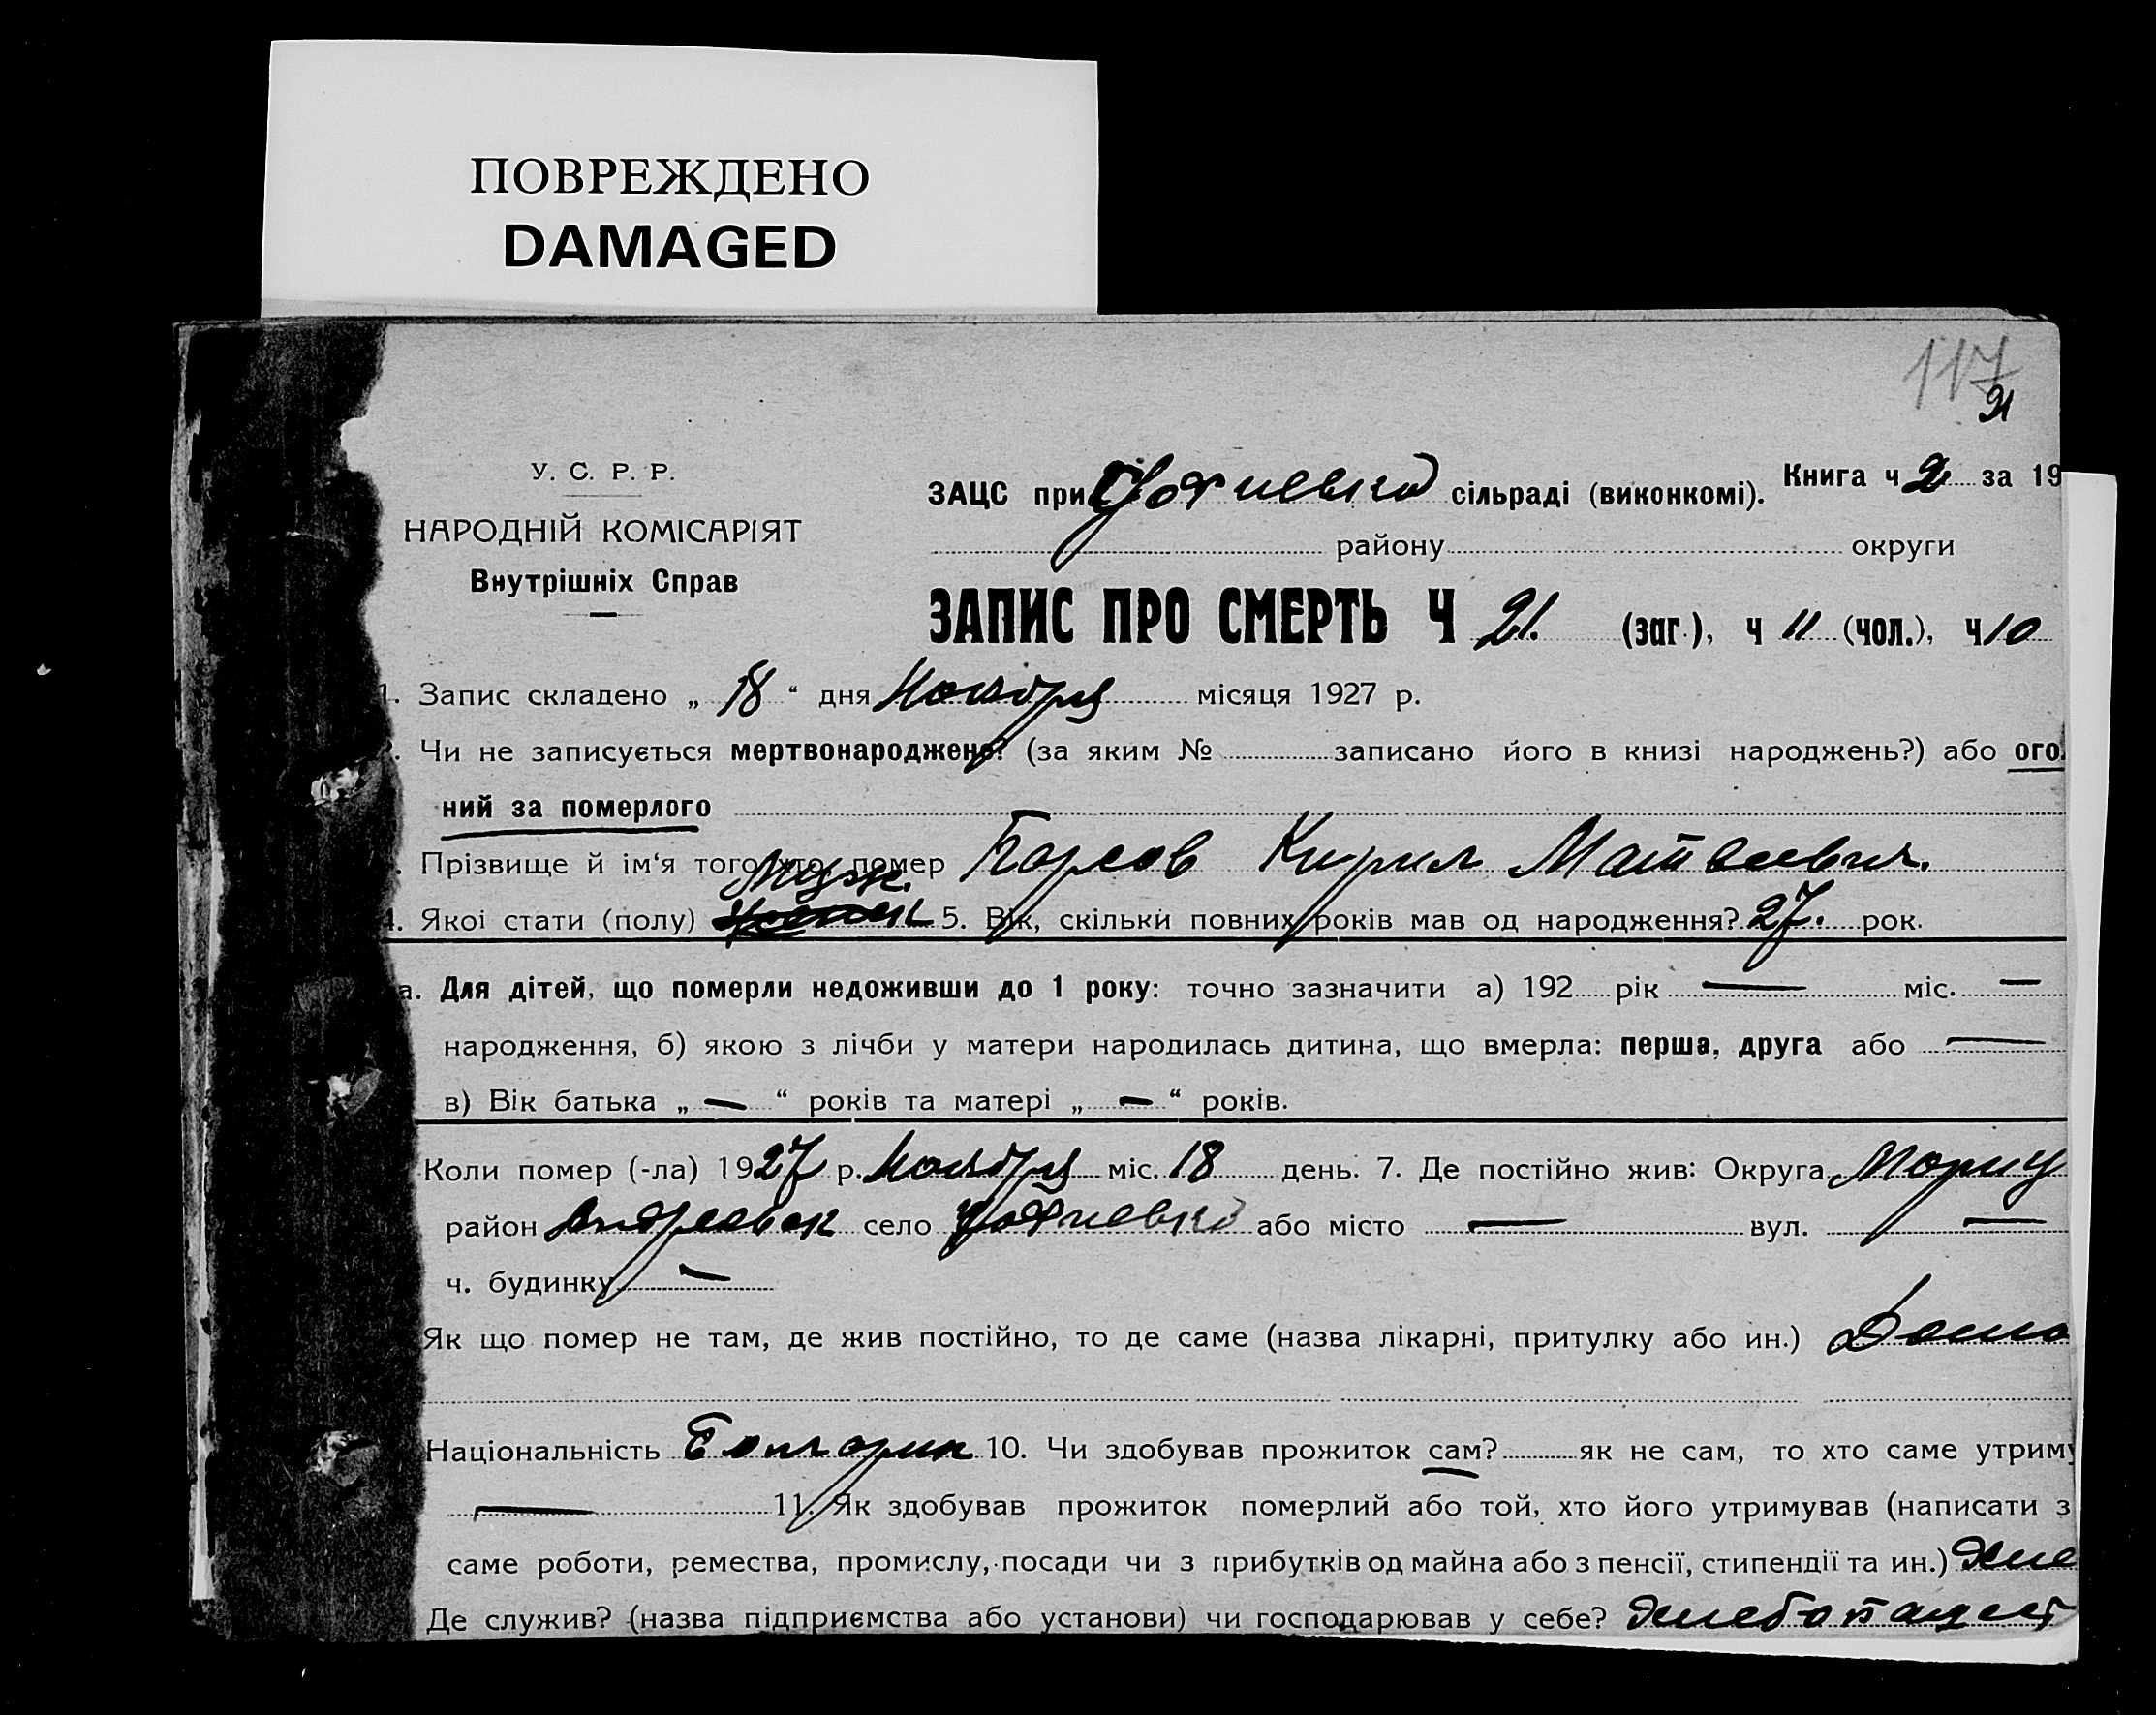 ПОВРЕЖДЕНО
DAMAGED
117
21
У. С. Р. Р.
НАРОДНІЙ КОМІСАРІЯТ
Внутрішніх Справ
ЗАЦС при сільраді (виконкомі). Книга ч 2 за 19
району округи
ЗАПИС ПРО СМЕРТЬ Ч 21. (заг.), ч 11 (чол.), ч 10
1. Запис складено „ 18 “ дня Ноября місяця 1927 р.
Чи не записується мертвонароджено? (за яким № записано його в книзі народжень?) або ого
ний за померлого
Прізвище й ім‘я того хто помер Кирил Матвеевич.
Муж.
4. Якої стати (полу) 5. Вік, скільки повних років мав од народження? 27. рок.
а. Для дітей, що померли недоживши до 1 року: точно зазначити а) 192 рік — міс. —
народження, б) якою з лічби у матери народилась дитина, що вмерла: перша, друга або —
в) Вік батька „ — “ років та матері „ — “ років.
Коли помер (-ла) 1927 р. Ноября міс. 18 день. 7. Де постійно жив: Округа Мариу
район Андреевск село або місто — вул. —
ч. будинку —
Як що помер не там, де жив постійно, то де саме (назва лікарні, притулку або ин.) Дома
Національність Болгарин 10. Чи здобував прожиток сам? як не сам, то хто саме утриму
— 11. Як здобував прожиток померлий або той, хто його утримував (написати з
саме роботи, ремества, промислу, посади чи з прибутків од майна або з пенсії, стипендії та ин.) Хле
Де служив? (назва підприємства або установи) чи господарював у себе? Хлебопашест